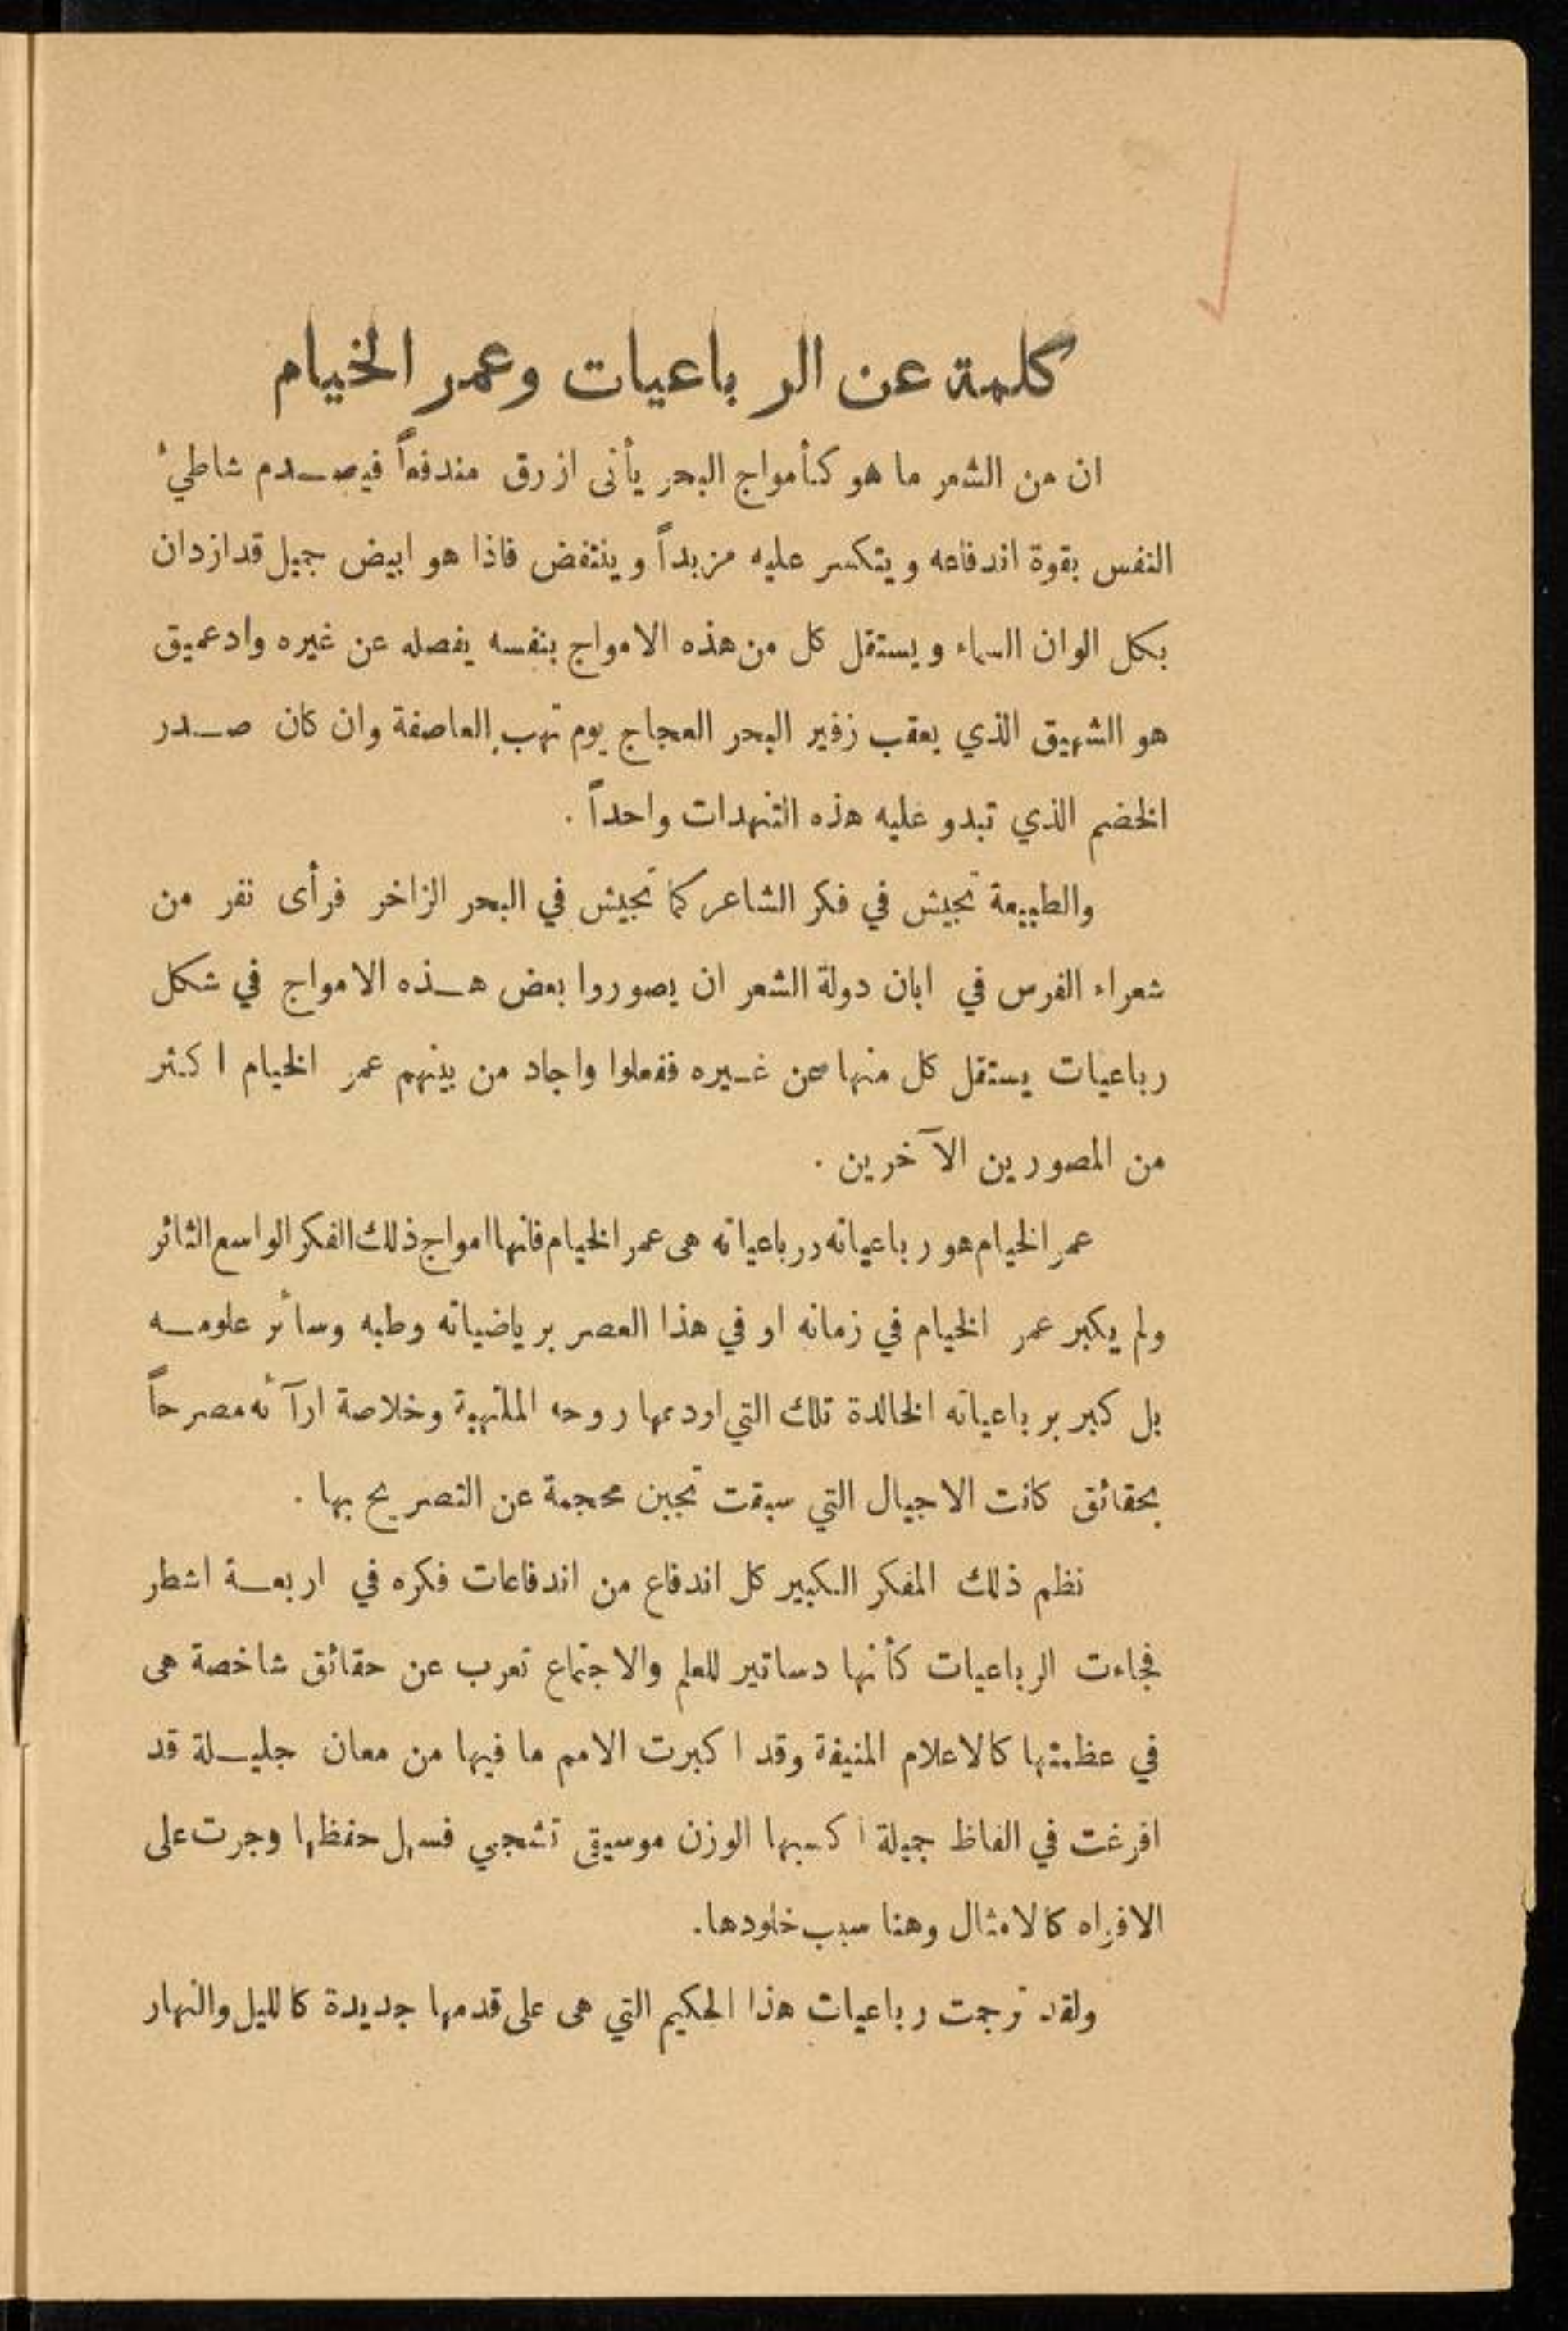 كلمة عن الرباعيات وعمر الخيام
ان من الشعر ما هو كأمواج البحر يأتى ازرق مندفعاً فيصـدم شاطئ
النفس بقوة اندفاعه ويتكسر عليه مزبداً وينتفض فاذا هو ابيض جميل قد ازدان
بكل الوان السماء ويستقل كل من هذه الامواج بنفسه يفصله عن غيره واد عميق
هو الشهيق الذي يعقب زفير البحر العجاج يوم تهب العاصفة وان كان صـدر
الخضم الذي تبدو عليه هذه التنهدات واحداً .
والطبيعة تجيش في فكر الشاعر كما تجيش في البحر الزاخر فرأى نفر من
شعراء الفرس في ابان دولة الشعر ان يصوروا بعض هـذه الامواج في شكل
رباعيات يستقل كل منها عن غـيره ففعلوا واجاد من بينهم عمر الخيام اكثر
من المصورين الآخرين .
عمر الخيام هو رباعياته ورباعياته هى عمر الخيام فانها امواج ذلك الفكر الواسع الثائر
ولم يكبر عمر الخيام في زمانه او في هذا العصر برياضياته وطبه وسائر علومـه
بل كبر برباعياته الخالدة تلك التي اودعها روحه الملتهبة وخلاصة ارآئه مصرحاً
بحقائق كانت الاجيال التي سبقت تجبن محجمة عن التصريح بها .
نظم ذلك المفكر الكبير كل اندفاع من اندفاعات فكره في اربعـة اشطر
فجاءت الرباعيات كأنها دساتير للعلم والاجتماع تعرب عن حقائق شاخصة هى
في عظمتها كالاعلام المنيفة وقد اكبرت الامم ما فيها من معان جليـلة قد
افرغت في الفاظ جميلة اكسبها الوزن موسيقى تشجي فسهل حفظها وجرت على
الافواه كالامثال وهنا سبب خلودها.
ولقد ترجمت رباعيات هذا الحكيم التي هى على قدمها جديدة كالليل والنهار